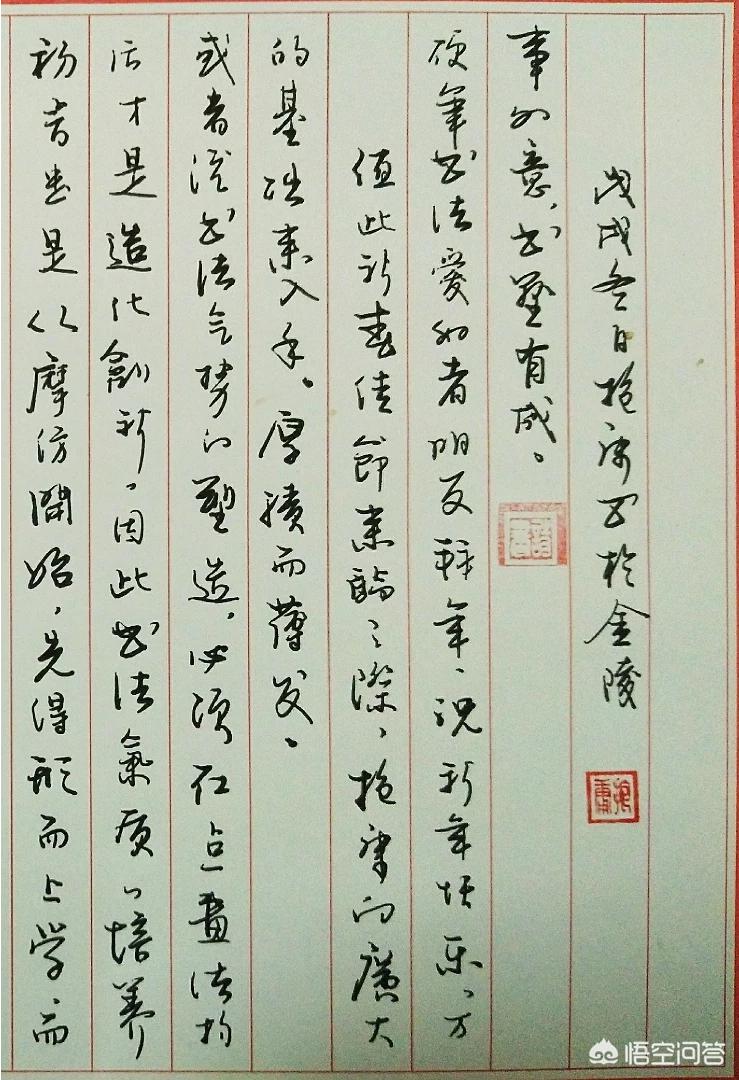 初者也是从摩仿開始，先得形而上学，而
后才是造化創新，因此书法氣质的培养
或者说书法气势的塑造，必须在点画法构
的基础来入手。厚積而薄发。
值此新春佳節来臨之際，抱庸向廣大
硬笔书法爱好者朋友拜年，祝新年快乐，万
事如意，书艺有成。
戊戌冬日抱庸书於金陵
抱庸
悟空问答